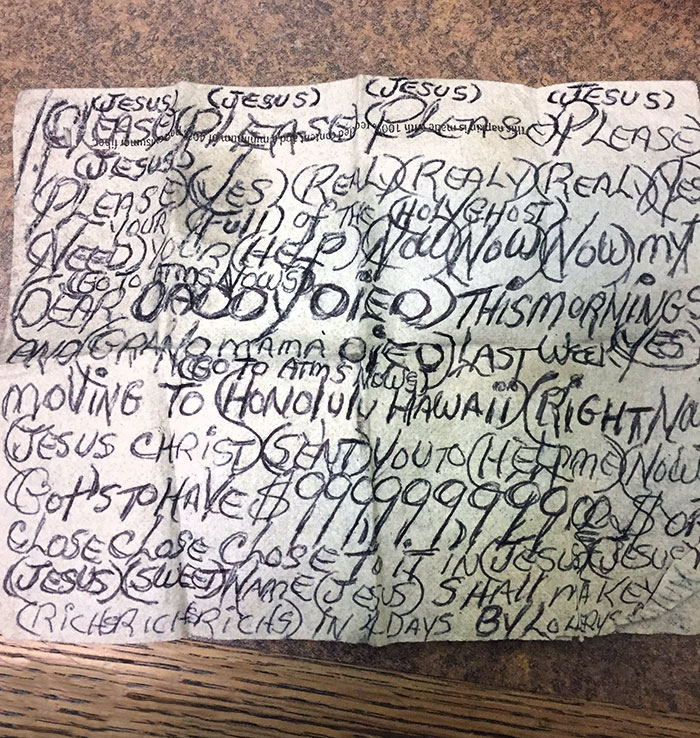 (JESUS) (JESUS) (JESUS) (JESUS)
(PLEASE) (PLEASE) (PLEASE) (PLEASE)
(JESUS)
(PLEASE) (YES) (REALY) (REALY) (REALY) (YES
YOUR (FULL) OF THE (HOLY GHOST)
(NEED) YOUR (HELP) (NOW) (NOW) (NOW) MY
(GO TO ATMS NOWS)
(DEAR DADDY DIED) THIS MORNINGS
AND (GRANDMAMA DIED) LAST WEEK (YES)
(GO TO ATMS NOWS)
MOVING TO (HONOLULU HAWAII) (RIGHT NO
(JESUS CHRIST) (SENT YOU TO (HELP ME) NOW
(GOT'S TO HAVE $
CLOSE CLOSE CLOSE TO IT IN (JESUS) (JESUS)
(JESUS) (SWEET) NAME (JESUS) SHALL MAKE Y
(RICHS RICHS RICHS) IN 2 DAYS BY